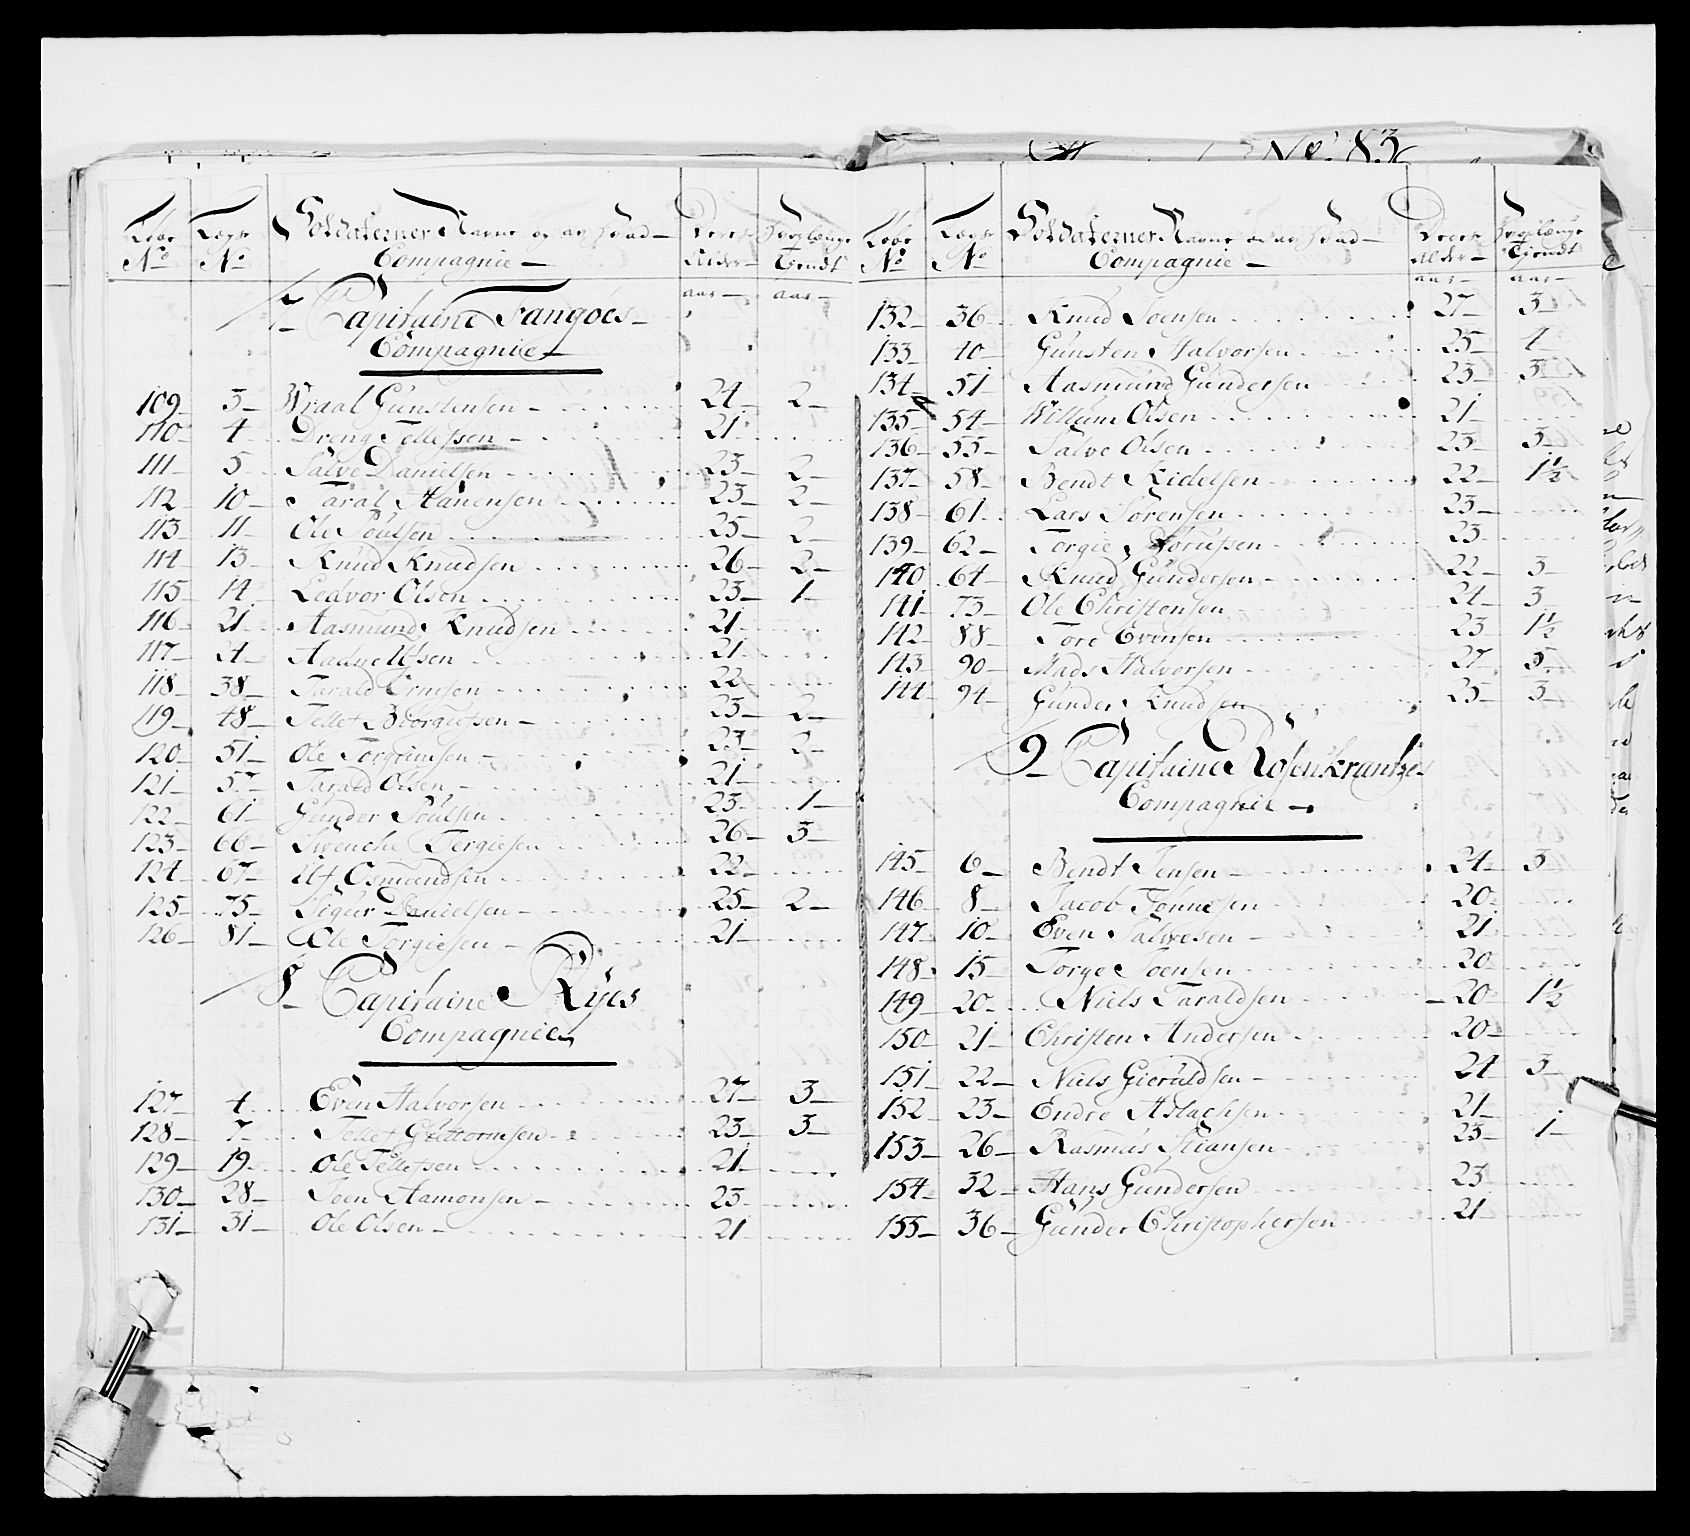 No. 83
Løbe No Lægs No Soldaternes Navne og af hvad Compagnie Deres Alder Hvorlænge Tjendt
aar aar
7 Capitaine Fangoes
Compagnie
109 3 Wraal Gunstensen 24 2
110 4 Dreng Tellefsen 21
111 5 Salve Danielsen 23 2
112 10 Taral Hanensen 23 2
113 11 Ole Poulsen 25 2
114 13 Knud Knudsen 26 2
115 14 Ledvor Olson 23 1
116 21 Aasmund Knudsen 21
117 Aadne 21
118 38 Tarald 22
119 48 Tellef Biorgufsen 23 2
120 51 Ole Torgrimsen 23 2
121 57 Tarald Olsen 21
122 61 Gunder Poulsen 23 1
123 66 Swenche Tergiesen 26 3
124 67 Ulf Osmundsen 22
125 75 Sigur Danielsen 25 2
126 81 Ole Torgiesen 21
8 Capitaine Ryes
Compagnie
127 4 Even Halvorsen 27 3
128 7 Tellef Guttormsen 23 3
129 19 Ole Tellefsen 21
130 28 Joen Aamonsen 23
131 31 Ole Olsen 21
Løbe No Lægs No Soldaternes Navne og af hvad Compagnie Deres Alder Hvorlænge Tjendt
aar aar
132 36 Knud Joensen 27 3
133 40 Gunsten Halvorsen 25 4
134 51 Aasmund Gundersen 23 3
135 54 Willum Olsen 21
136 55 Salve Olsen 23 3
137 58 Bendt Kidelsen 22 1½
138 61 Lars Sørensen 23
139 62 Torgie 23
140 64 Knud Gundersen 22 3
141 73 Ole Christensen 24 3
142 88 Tore Evensen 23 1½
143 90 Mads Halvorsen 27 5
144 94 Gunder Knudsen 25 3
9 Capitaine Rosenkrantzes
Compagnie
145 6 Bendt Jensen 24 3
146 8 Jacob Tønnesen 20
147 10 Even Salvesen 21
148 15 Torge Joensen 20
149 20 Niels Taraldsen 20 1½
150 21 Christen Andersen 20
151 22 Niels Gieruldsen 24 3
152 23 Endre Aslachsen 21
153 26 Rasmus Stiansen 23 1
154 32 Hans Gundersen 23
155 36 Gunder Christophersen 21